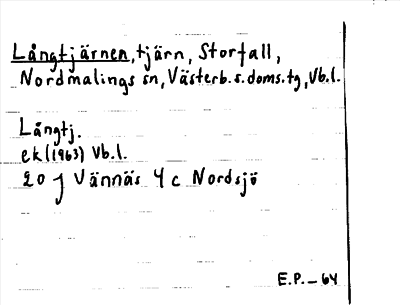 Långtjärnen, tjärn, Storfall,
Nordmalings sn, Västerb. s. doms. tg, Vb. l.
Långtj.
ek (1963) Vb. l.
20 J Vännäs 4 c Nordsjö
E.P. – 64